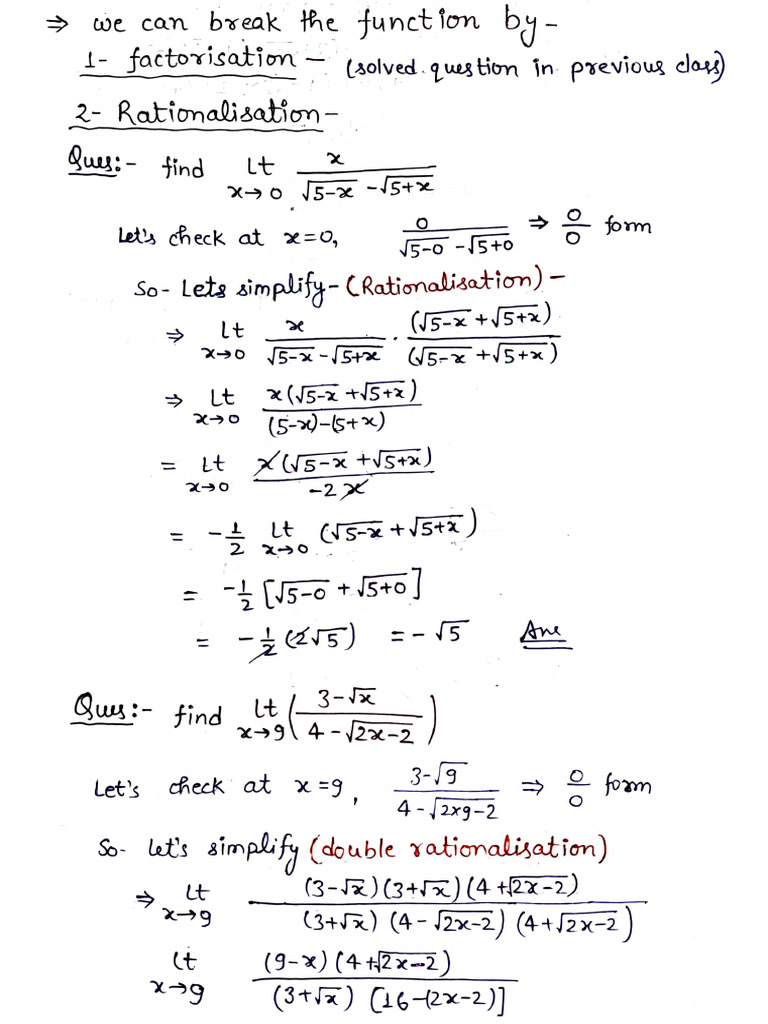 ⇒ we can break the function by-
1- factorisation - (solved question in previous class)
2- Rationalisation-
Ques:- find Lt x→0 x/(√5-x - √5+x)
Let's check at x=0, 0/(√5-0 - √5+0) ⇒ 0/0 form
So- Lets simplify - (Rationalisation) -
⇒ Lt x→0 x/(√5-x - √5+x) . (√5-x + √5+x)/(√5-x + √5+x)
⇒ Lt x→0 x(√5-x + √5+x)/(5-x)-(5+x)
= Lt x→0 x(√5-x + √5+x)/-2x
= -1/2 Lt x→0 (√5-x + √5+x)
= -1/2 [√5-0 + √5+0]
= -1/2 (2√5) = -√5 Ans
Ques:- find Lt x→9 (3-√x / 4-√2x-2)
Let's check at x=9, 3-√9 / 4-√2x9-2 ⇒ 0/0 form
So- Let's simplify (double rationalisation)
⇒ Lt x→9 (3-√x)(3+√x)(4+√2x-2) / (3+√x)(4-√2x-2)(4+√2x-2)
Lt x→9 (9-x)(4+√2x-2) / (3+√x)[16-(2x-2)]